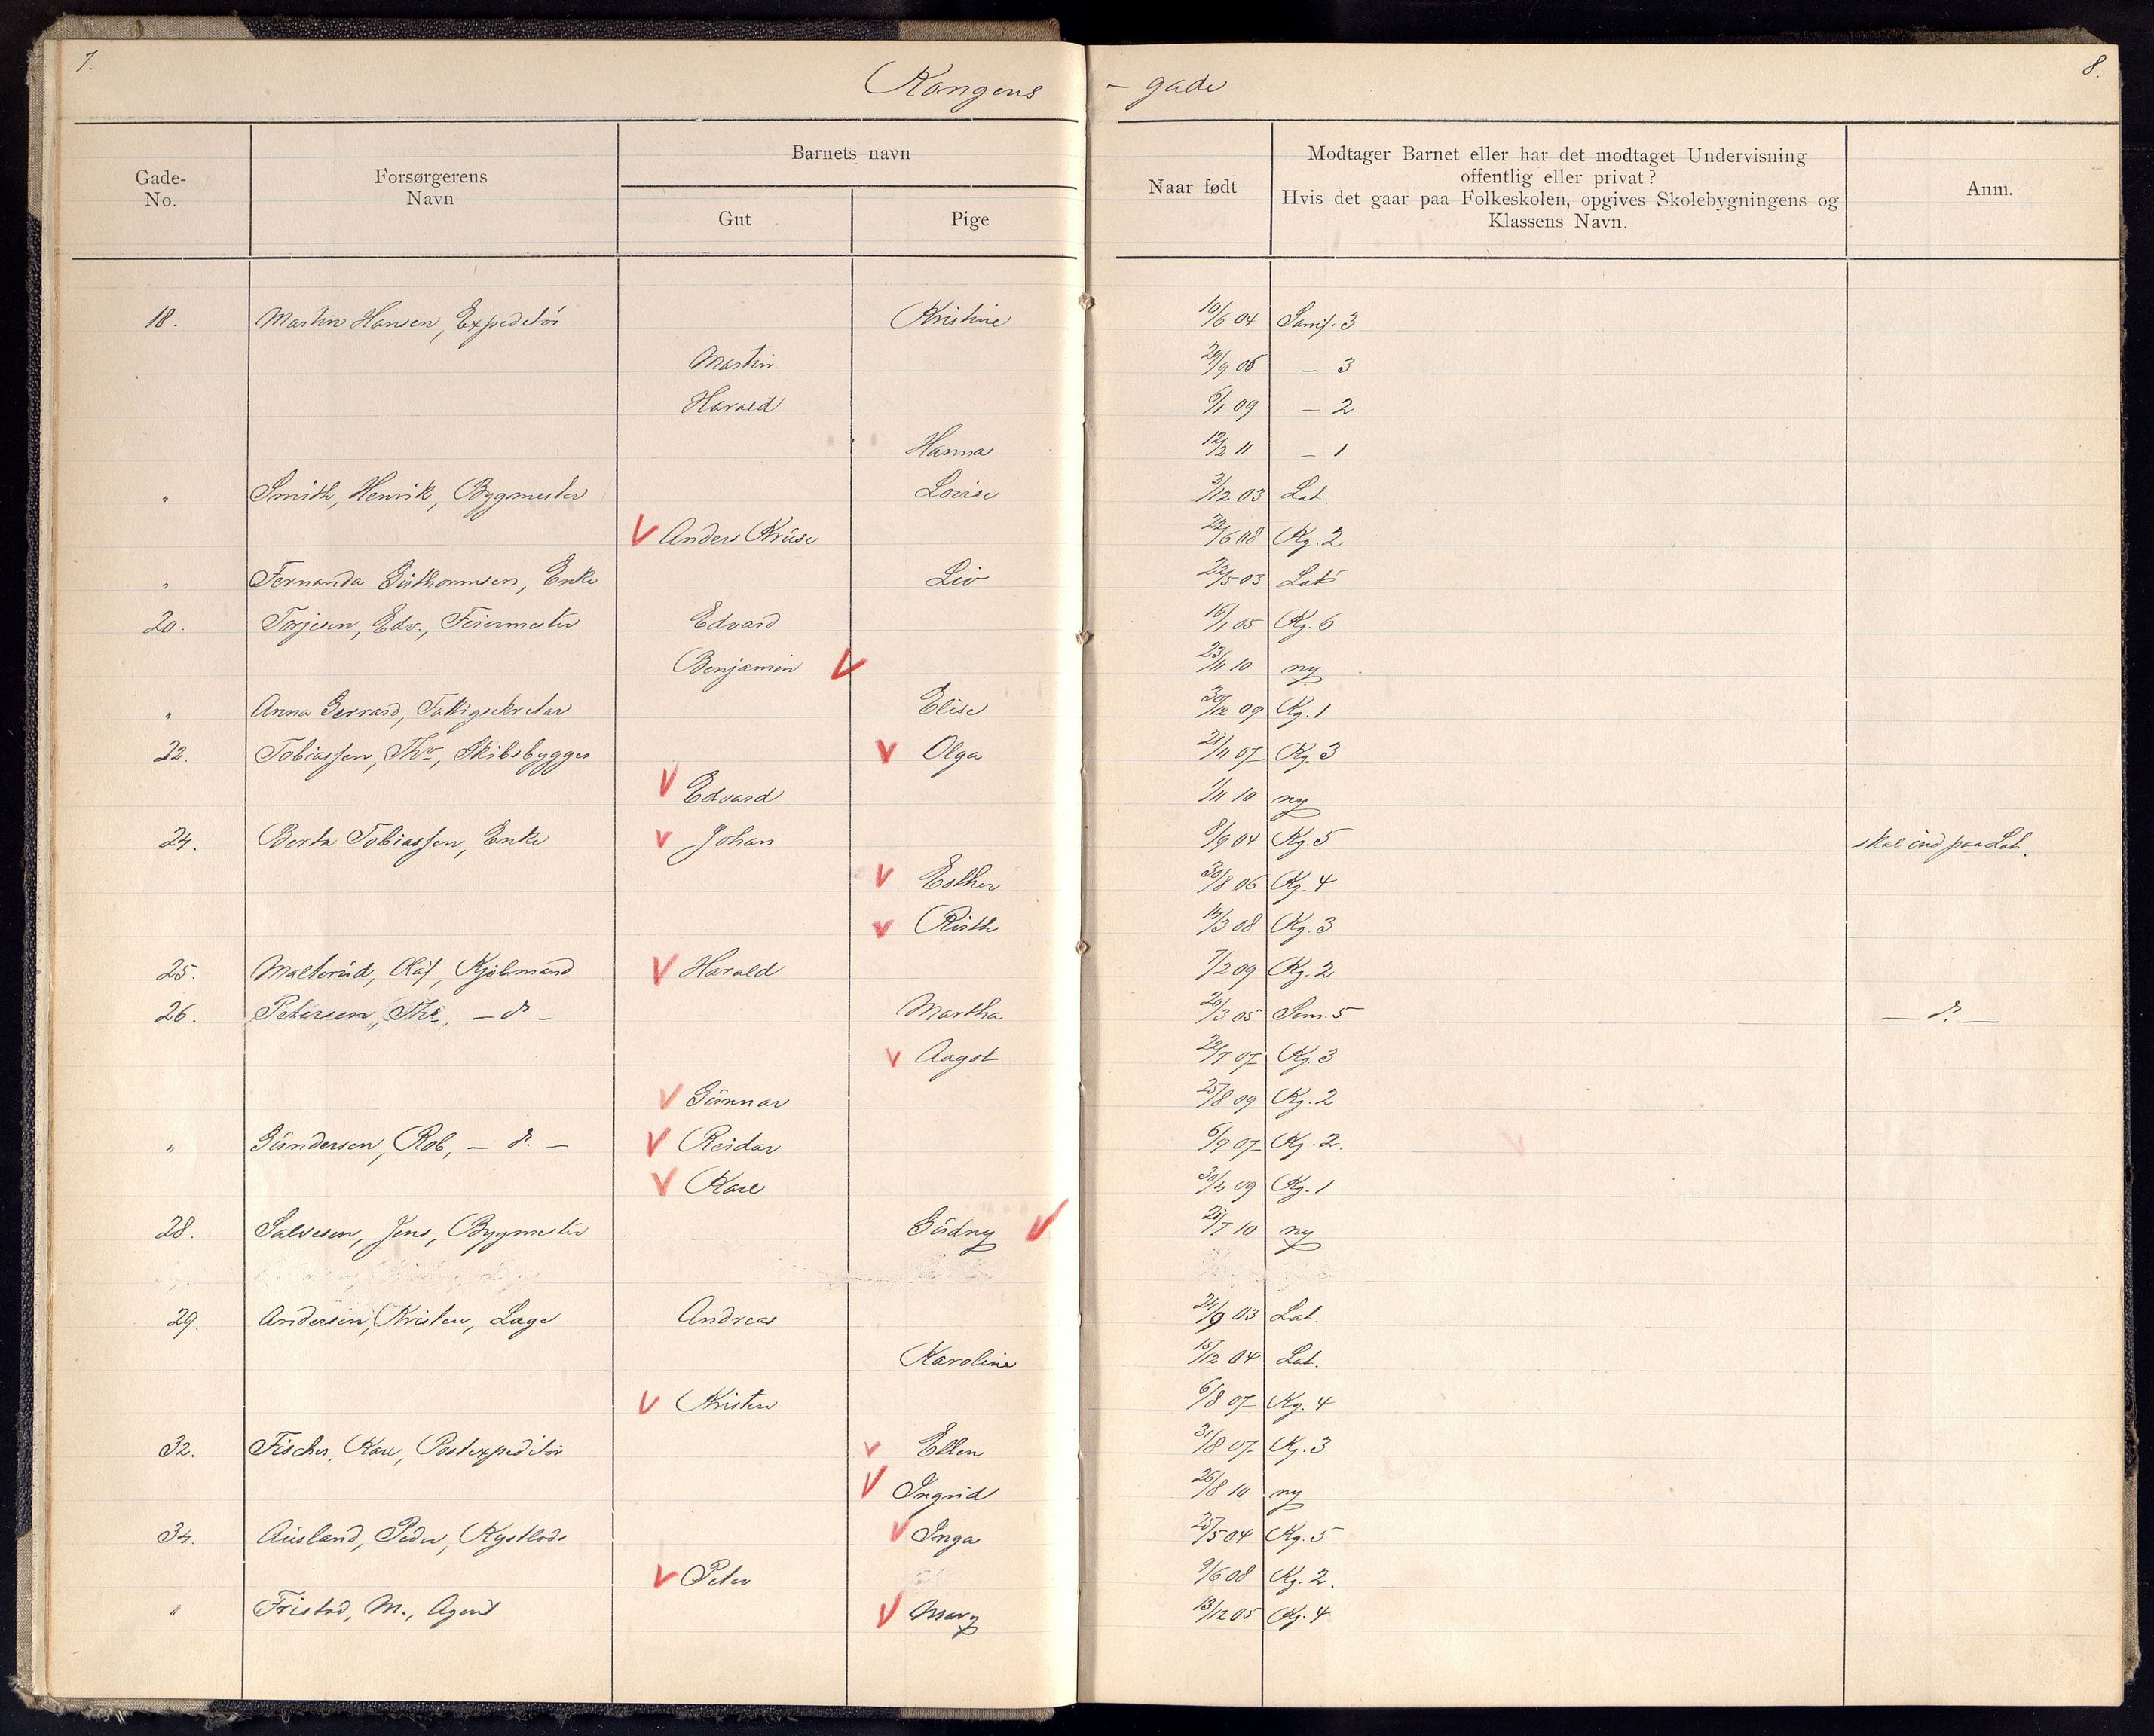 7.
8.
Kongens - gade
Gade-No. Forsørgerens Navn Barnets navn Gut Pige Naar født Modtager Barnet eller har det modtaget Undervisning offentlig eller privat? Hvis det gaar paa Folkeskolen, opgives Skolebygningens og Klassens Navn. Anm.
18. Martin Hansen, Expeditør Kristine 10/6 04 3
Martin 29/9 06 — 3
Harald 6/1 09 — 2
Hanna 12/2 11 — 1
" Smith, Henrik, Bygmester Lovise 3/12 03 Lat.
V Anders Kruse 22/6 08 Kg. 2
" Fernanda Guthormsen, Enke Liv 22/5 03 Lat
20. Torjesen, Edv., Feiermester Edvard 16/1 05 Kg. 6
Benjamin V 23/11 10 ny
" Anna Gerrard, Elise 30/12 09 Kg. 1
22. Tobiassen, Thv, Skibsbygger V Olga 21/11 07 Kg. 3
V Edvard 1/11 10 ny
24. Berta Tobiassen, Enke V Johan 8/9 04 Kg. 5 skal ind paa Lat.
V Esther 30/8 06 Kg. 4
V Ruth 14/3 08 Kg. 3
25. Malterud, Olaf, Kjøbmand V Harald 7/2 09 Kg. 2
26. Petersen, — d° — Martha 20/3 05 Sem. 5 — d°. —
V Aagot 22/7 07 Kg. 3
V Gunnar 25/8 09 Kg. 2
" Gundersen, Rob, — d°. — V Reidar 6/9 07 Kg. 2.
V Kare 30/4 09 Kg. 1
28. Salvesen, Jens, Bygmester Gudny V 21/7 10 ny
29. Andersen, Kristen, Læge Andreas 24/9 03 Lat.
Karoline 15/12 04 Lat.
V Kristen 6/8 07 Kg. 4
32. Fischer, Karl, Postexpeditør V Ellen 31/8 07 Kg. 3
V Ingrid 26/8 10 ny
34. Ausland, Peder, Kystlods V Inga 25/5 04 Kg. 5
V Peter 9/6 08 Kg. 2.
" Fristad, M., Agent V Mary 13/12 05 Kg. 4